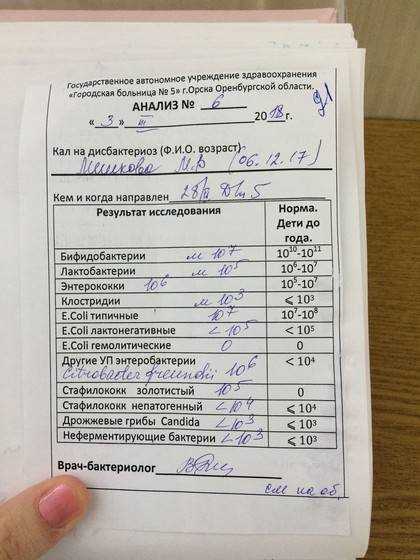 Государственное автономное учреждение здравоохранения
«Городская больница № 5» г.Орска Оренбургской области.
АНАЛИЗ № 6
« 3 » III 2018 г.
Кал на дисбактериоз (Ф.И.О. возраст)
М.В (06.12.17)
Кем и когда направлен 28/II 5
Результат исследования Норма. Дети до года.
Бифидобактерии м 10⁷ 10¹⁰-10¹¹
Лактобактерии м 10⁵ 10⁶-10⁷
Энтерококки 10⁶ 10⁵-10⁷
Клостридии м 10³ ⩽ 10³
E.Coli типичные 10⁷ 10⁷-10⁸
E.Coli лактонегативные < 10⁵ < 10⁵
E.Coli гемолитические 0 0
Другие УП энтеробактерии < 10⁴
Citrobacter freundii 10⁶
Стафилококк золотистый 10⁵ 0
Стафилококк непатогенный < 10⁴ ⩽ 10⁴
Дрожжевые грибы Candida < 10³ ⩽ 10³
Неферментирующие бактерии < 10³ ⩽ 10³
Врач-бактериолог
см на об.